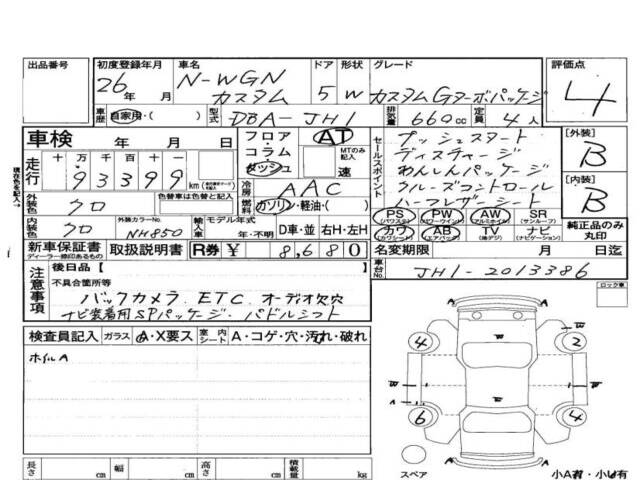 出品番号 初度登録年月 車名 ドア 形状 グレード 評価点
26年 月 N-WGN カスタム 5 W カスタムGターボパッケージ 4
車歴 自家用・( ) 型式 DBA-JH1 排気量 660cc 定員 4人
車検 年 月 日
フロア・コラム・ダッシュ AT MTのみ記入 速
走行 十 万 千 百 十 一
93399 km
セールスポイント
プッシュスタート
ディスチャージ
あんしんパッケージ
クルーズコントロール
ハーフレザーシート
[外装] B
[内装] B
現在色を記入→
外装色 クロ 色替車は色替と記入
冷房 AAC
燃料 ガソリン・軽油・( )
内装色 クロ 外装カラーNo. NH850
輸入車 モデル年式 年・不明 D車・並 右H・左H
PS (パワステ) PW (パワーウインド) AW (アルミホイル) SR (サンルーフ)
カワ (カワシート) AB (エアバック) TV (地デジ) ナビ (ナビゲーション)
純正品のみ丸印
新車保証書 ディーラー捺印あるもの 取扱説明書 R券 ¥ 8,680
名変期限 月 日迄
車台No. JH1-2013386
注意事項
後日品【 】
不具合箇所等
バックカメラ ETC オーデオ欠穴
ナビ装着用SPパッケージ・パドルシフト
ロック車
検査員記入 ガラス A・X要ス 室内シート A・コゲ・穴・汚れ・破れ
ホイルA
A A
4 2
W W W
W
A W
6 4
A A
スペア
長さ cm 幅 cm 高さ cm 積載量 kg
小A有・小U有